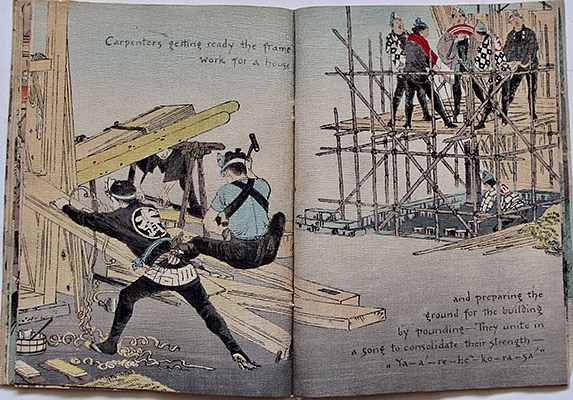 Carpenters getting ready the frame
work for a house
and preparing the
ground for the building
by pounding— They unite in
a song to consolidate their strength—
a "Ya-a'-re-he"-ko-ra-sa'"